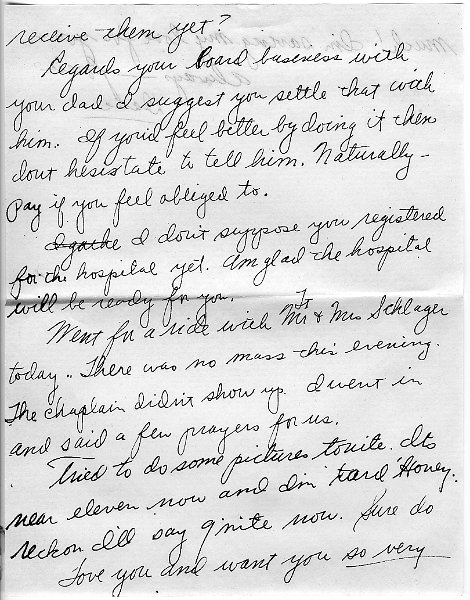 receive them yet?
Regards your board business with
your dad I suggest you settle that with
him. If you'd feel better by doing it then
dont hesistate to tell him. Naturally -
pay if you feel obliged to.
I don't suppose you registered
for the hospital yet. Am glad the hospital
will be ready for you.
Went for a ride with Mr & Mrs Schlager
today.. There was no mass this evening.
The chaplain didn't show up. I went in
and said a few prayers for us.
Tried to do some pictures tonite. Its
near eleven now and I'm tard Honey.
reckon I'll say g'nite now. Sure do
love you and want you so very